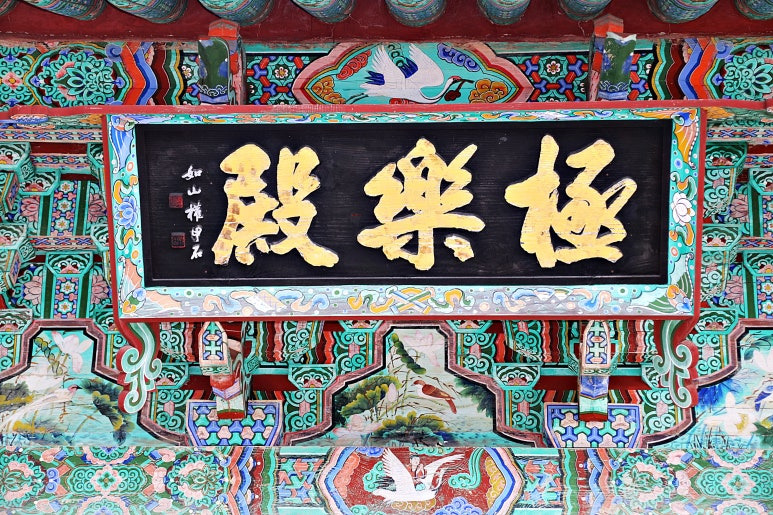 極樂殿
如山權甲石